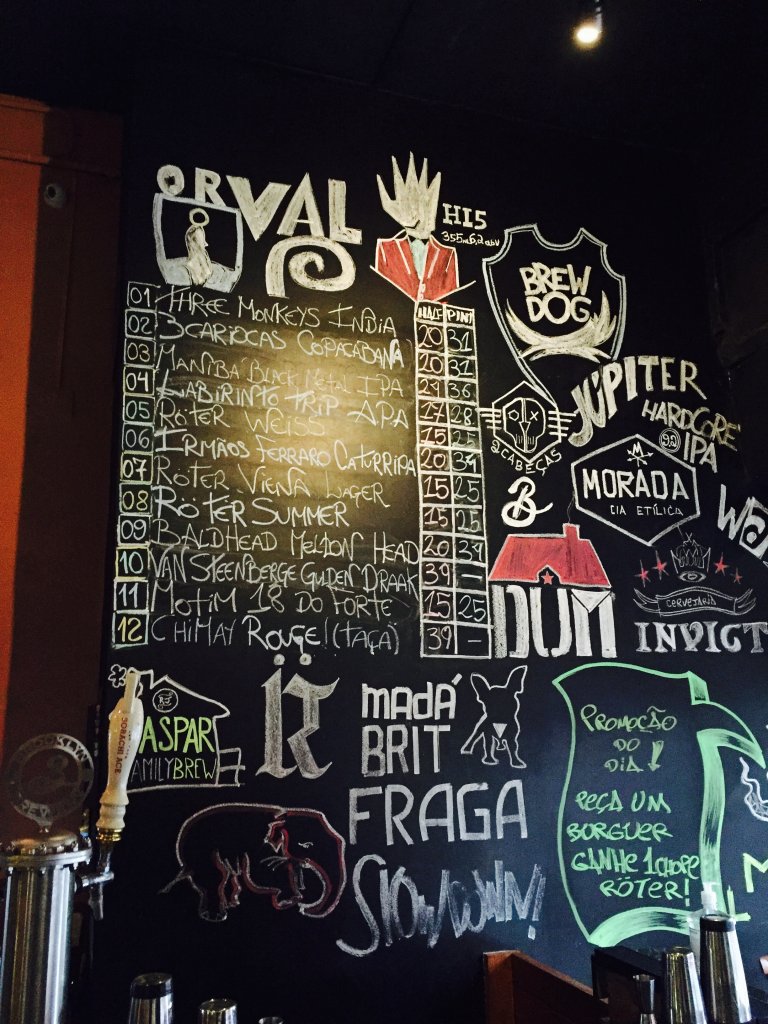 ORVAL
HI5
355ml 6,2 abv
BREW
DOG
HALF PINT
01 THREE MONKEYS INDIA 20 31
02 3CARIOCAS COPACABANA 20 31
03 MANIBA BLACK METAL IPA 23 36
04 LABIRINTO TRIP APA 17 28
05 RÖTER WEISS 15 25
06 IRMÃOS FERRARO CATURRIPA 20
07 RÖTER VIENA LAGER 15 25
08 RÖTER SUMMER 15 25
09 BALDHEAD MELTON HEAD 20
10 VAN STEENBERGE GULDEN DRAAK 39 —
11 MOTIM 18 DO FORTE 15 25
12 CHIMAY ROUGE! (TAÇA) 39 —
2CABEÇAS
JÚPITER
HARDCORE
9.2
IPA
MORADA
CIA ETÍLICA
B
DUM
CERVEJARIA
INVICT
ASPAR
AMILYBREW
MADÁ
BRIT
FRAGA
SLOWDOWN!
PROMOÇÃO
DO
DIA!
PEÇA UM
BURGUER
GANHE 1CHOPE
RÖTER!
SORACHI ACE